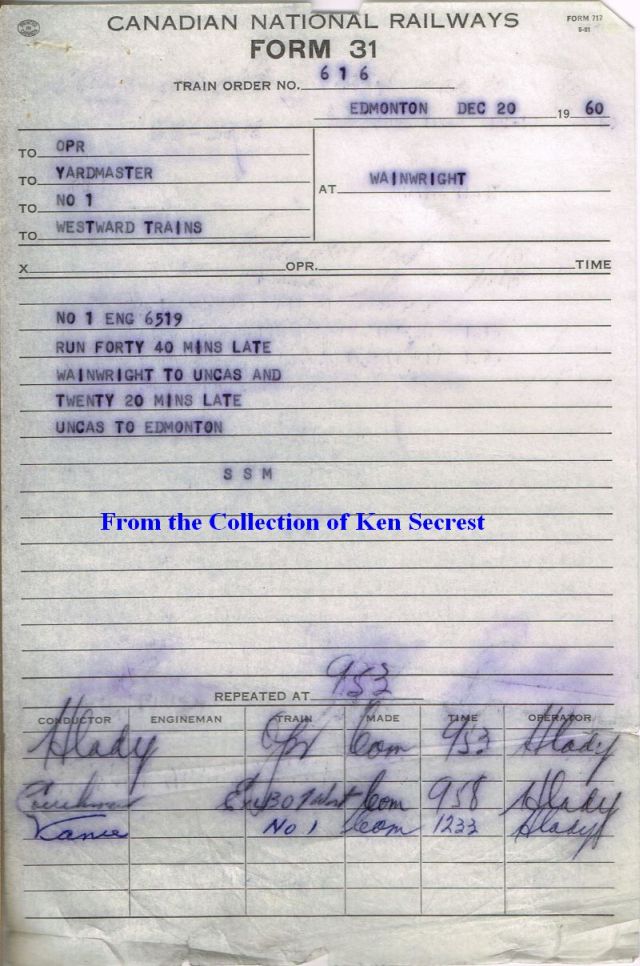 CANADIAN NATIONAL RAILWAYS
FORM 717
FORM 31
TRAIN ORDER NO. 616
EDMONTON DEC 20 1960
TO OPR
TO YARDMASTER
AT WAINWRIGHT
TO NO 1
TO WESTWARD TRAINS
X OPR. TIME
NO 1 ENG 6519
RUN FORTY 40 MINS LATE
WAINWRIGHT TO UNCAS AND
TWENTY 20 MINS LATE
UNCAS TO EDMONTON
S S M
From the Collection of Ken Secrest
REPEATED AT 953
CONDUCTOR ENGINEMAN TRAIN MADE TIME OPERATOR
Hlady Opr Com 953 Hlady
Eng Com 958 Hlady
Vance No 1 Com 1233 Hlady